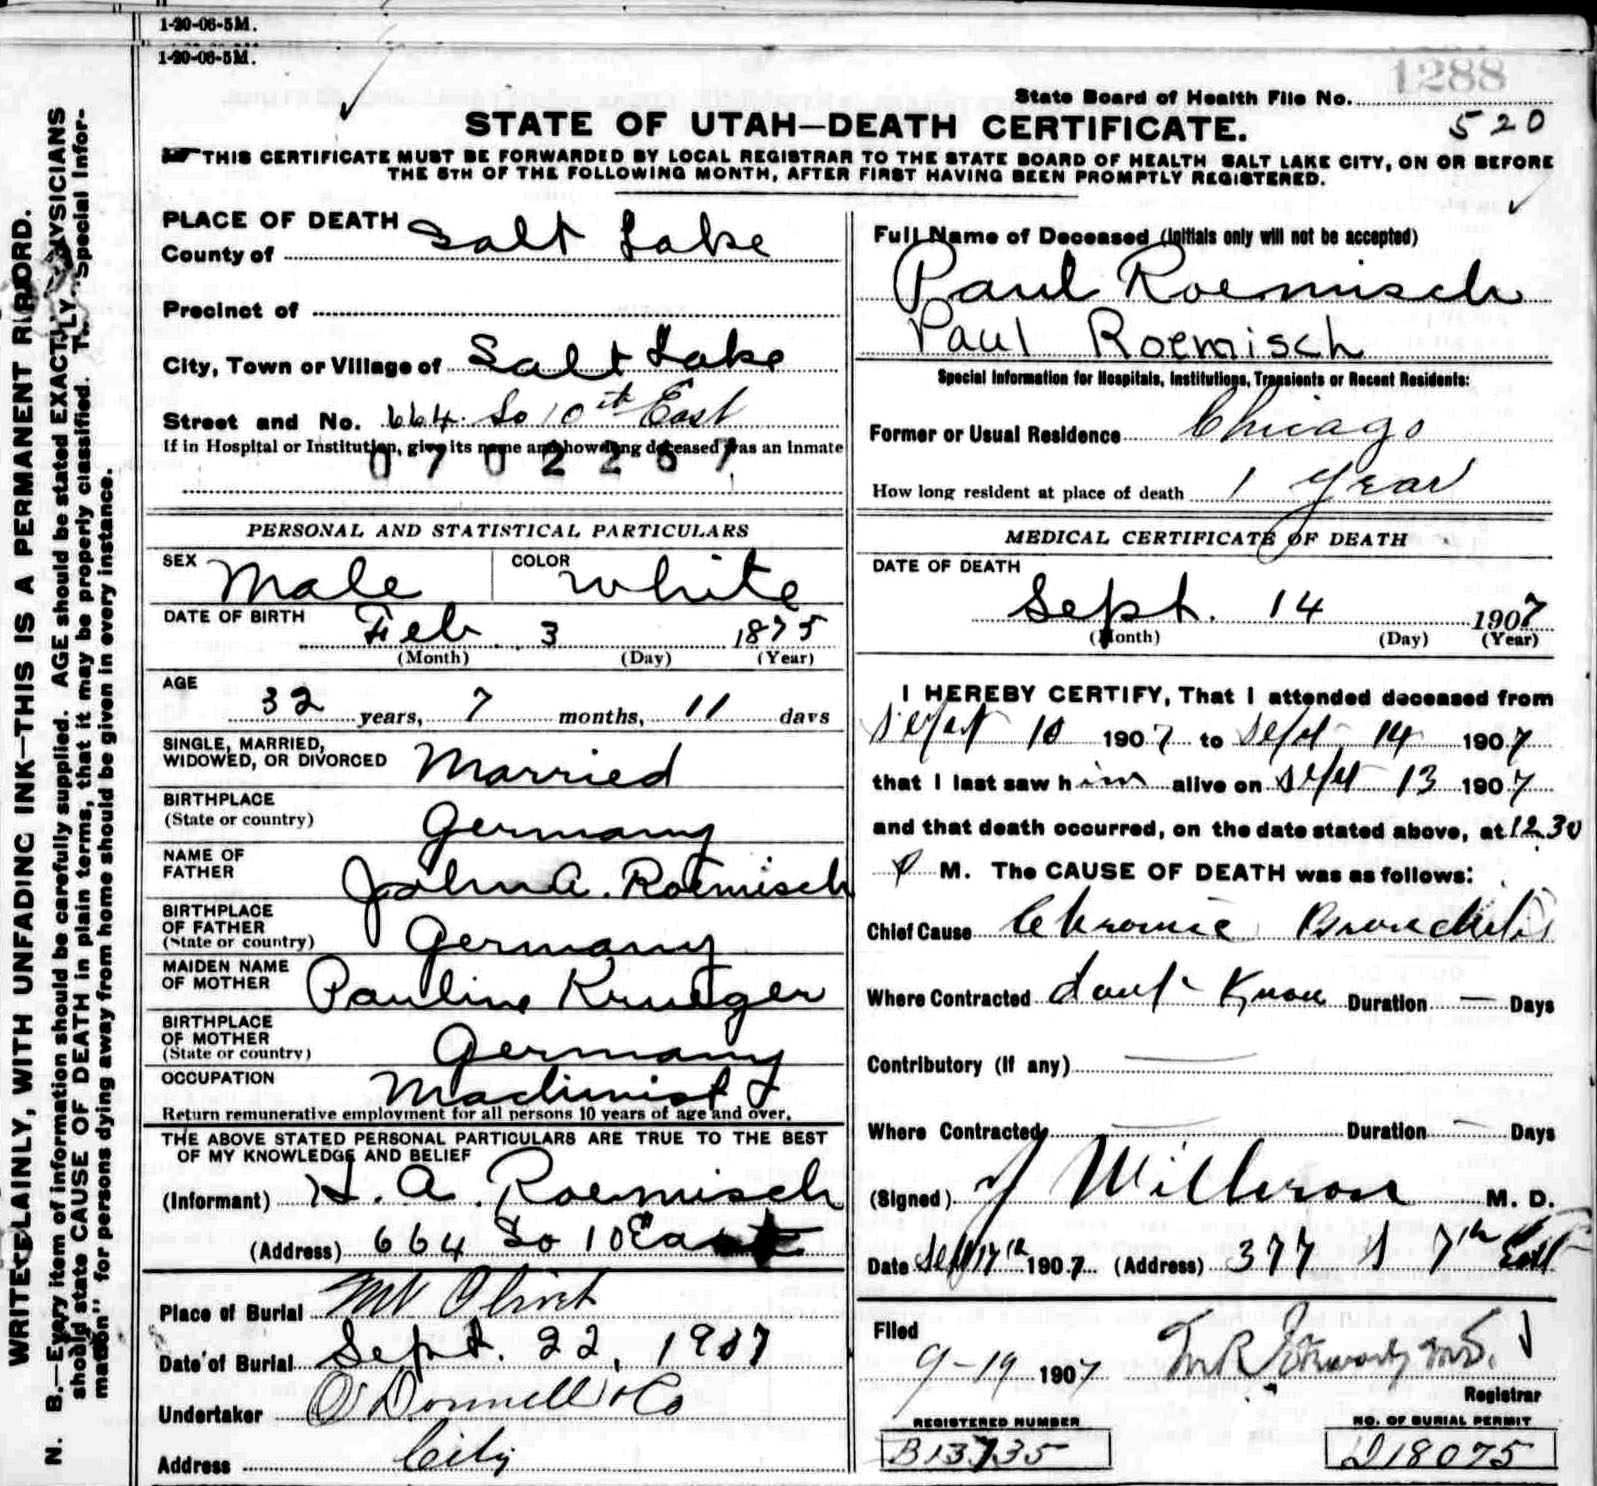 1-20-06-5M.
1-20-06-5M.
1288
State Board of Health File No.
520
STATE OF UTAH—DEATH CERTIFICATE.
THIS CERTIFICATE MUST BE FORWARDED BY LOCAL REGISTRAR TO THE STATE BOARD OF HEALTH SALT LAKE CITY, ON OR BEFORE
THE 5TH OF THE FOLLOWING MONTH, AFTER FIRST HAVING BEEN PROMPTLY REGISTERED.
WRITE PLAINLY, WITH UNFADING INK—THIS IS A PERMANENT RECORD.
N. B.—Every item of information should be carefully supplied. AGE should be stated EXACTLY. PHYSICIANS
should state CAUSE OF DEATH in plain terms, that it may be properly classified. The "Special Infor-
mation" for persons dying away from home should be given in every instance.
PLACE OF DEATH
County of Salt Lake
Precinct of
City, Town or Village of Salt Lake
Street and No. 664 So 10th East
If in Hospital or Institution, give its name and how long deceased was an Inmate
0702267
PERSONAL AND STATISTICAL PARTICULARS
SEX Male COLOR White
DATE OF BIRTH Feb 3 1875
(Month) (Day) (Year)
AGE
32 years, 7 months, 11 days
SINGLE, MARRIED,
WIDOWED, OR DIVORCED Married
BIRTHPLACE
(State or country) Germany
NAME OF
FATHER John A. Roemisch
BIRTHPLACE
OF FATHER
(State or country) Germany
MAIDEN NAME
OF MOTHER Pauline Krueger
BIRTHPLACE
OF MOTHER
(State or country) Germany
OCCUPATION Machinist
Return remunerative employment for all persons 10 years of age and over.
THE ABOVE STATED PERSONAL PARTICULARS ARE TRUE TO THE BEST
OF MY KNOWLEDGE AND BELIEF
(Informant) H. A. Roemisch
(Address) 664 So 10 East
Place of Burial Mt Olivet
Date of Burial Sept. 22, 1907
Undertaker O'Donnell & Co
Address City
Full Name of Deceased (Initials only will not be accepted)
Paul Roemisch
Paul Roemisch
Special Information for Hospitals, Institutions, Transients or Recent Residents:
Former or Usual Residence Chicago
How long resident at place of death 1 Year
MEDICAL CERTIFICATE OF DEATH
DATE OF DEATH
Sept. 14 1907
(Month) (Day) (Year)
I HEREBY CERTIFY, That I attended deceased from
Sept 10 1907 to Sept 14 1907
that I last saw him alive on Sept 13 1907
and that death occurred, on the date stated above, at 12.30
P M. The CAUSE OF DEATH was as follows:
Chief Cause Chronic Bronchitis
Where Contracted dont Know Duration — Days
Contributory (if any)
Where Contracted Duration Days
(Signed) M. D.
Date Sept 17th 1907 (Address) 377 S 7th East
Filed
9-19 1907
Registrar
REGISTERED NUMBER
B13735
NO. OF BURIAL PERMIT
D18075